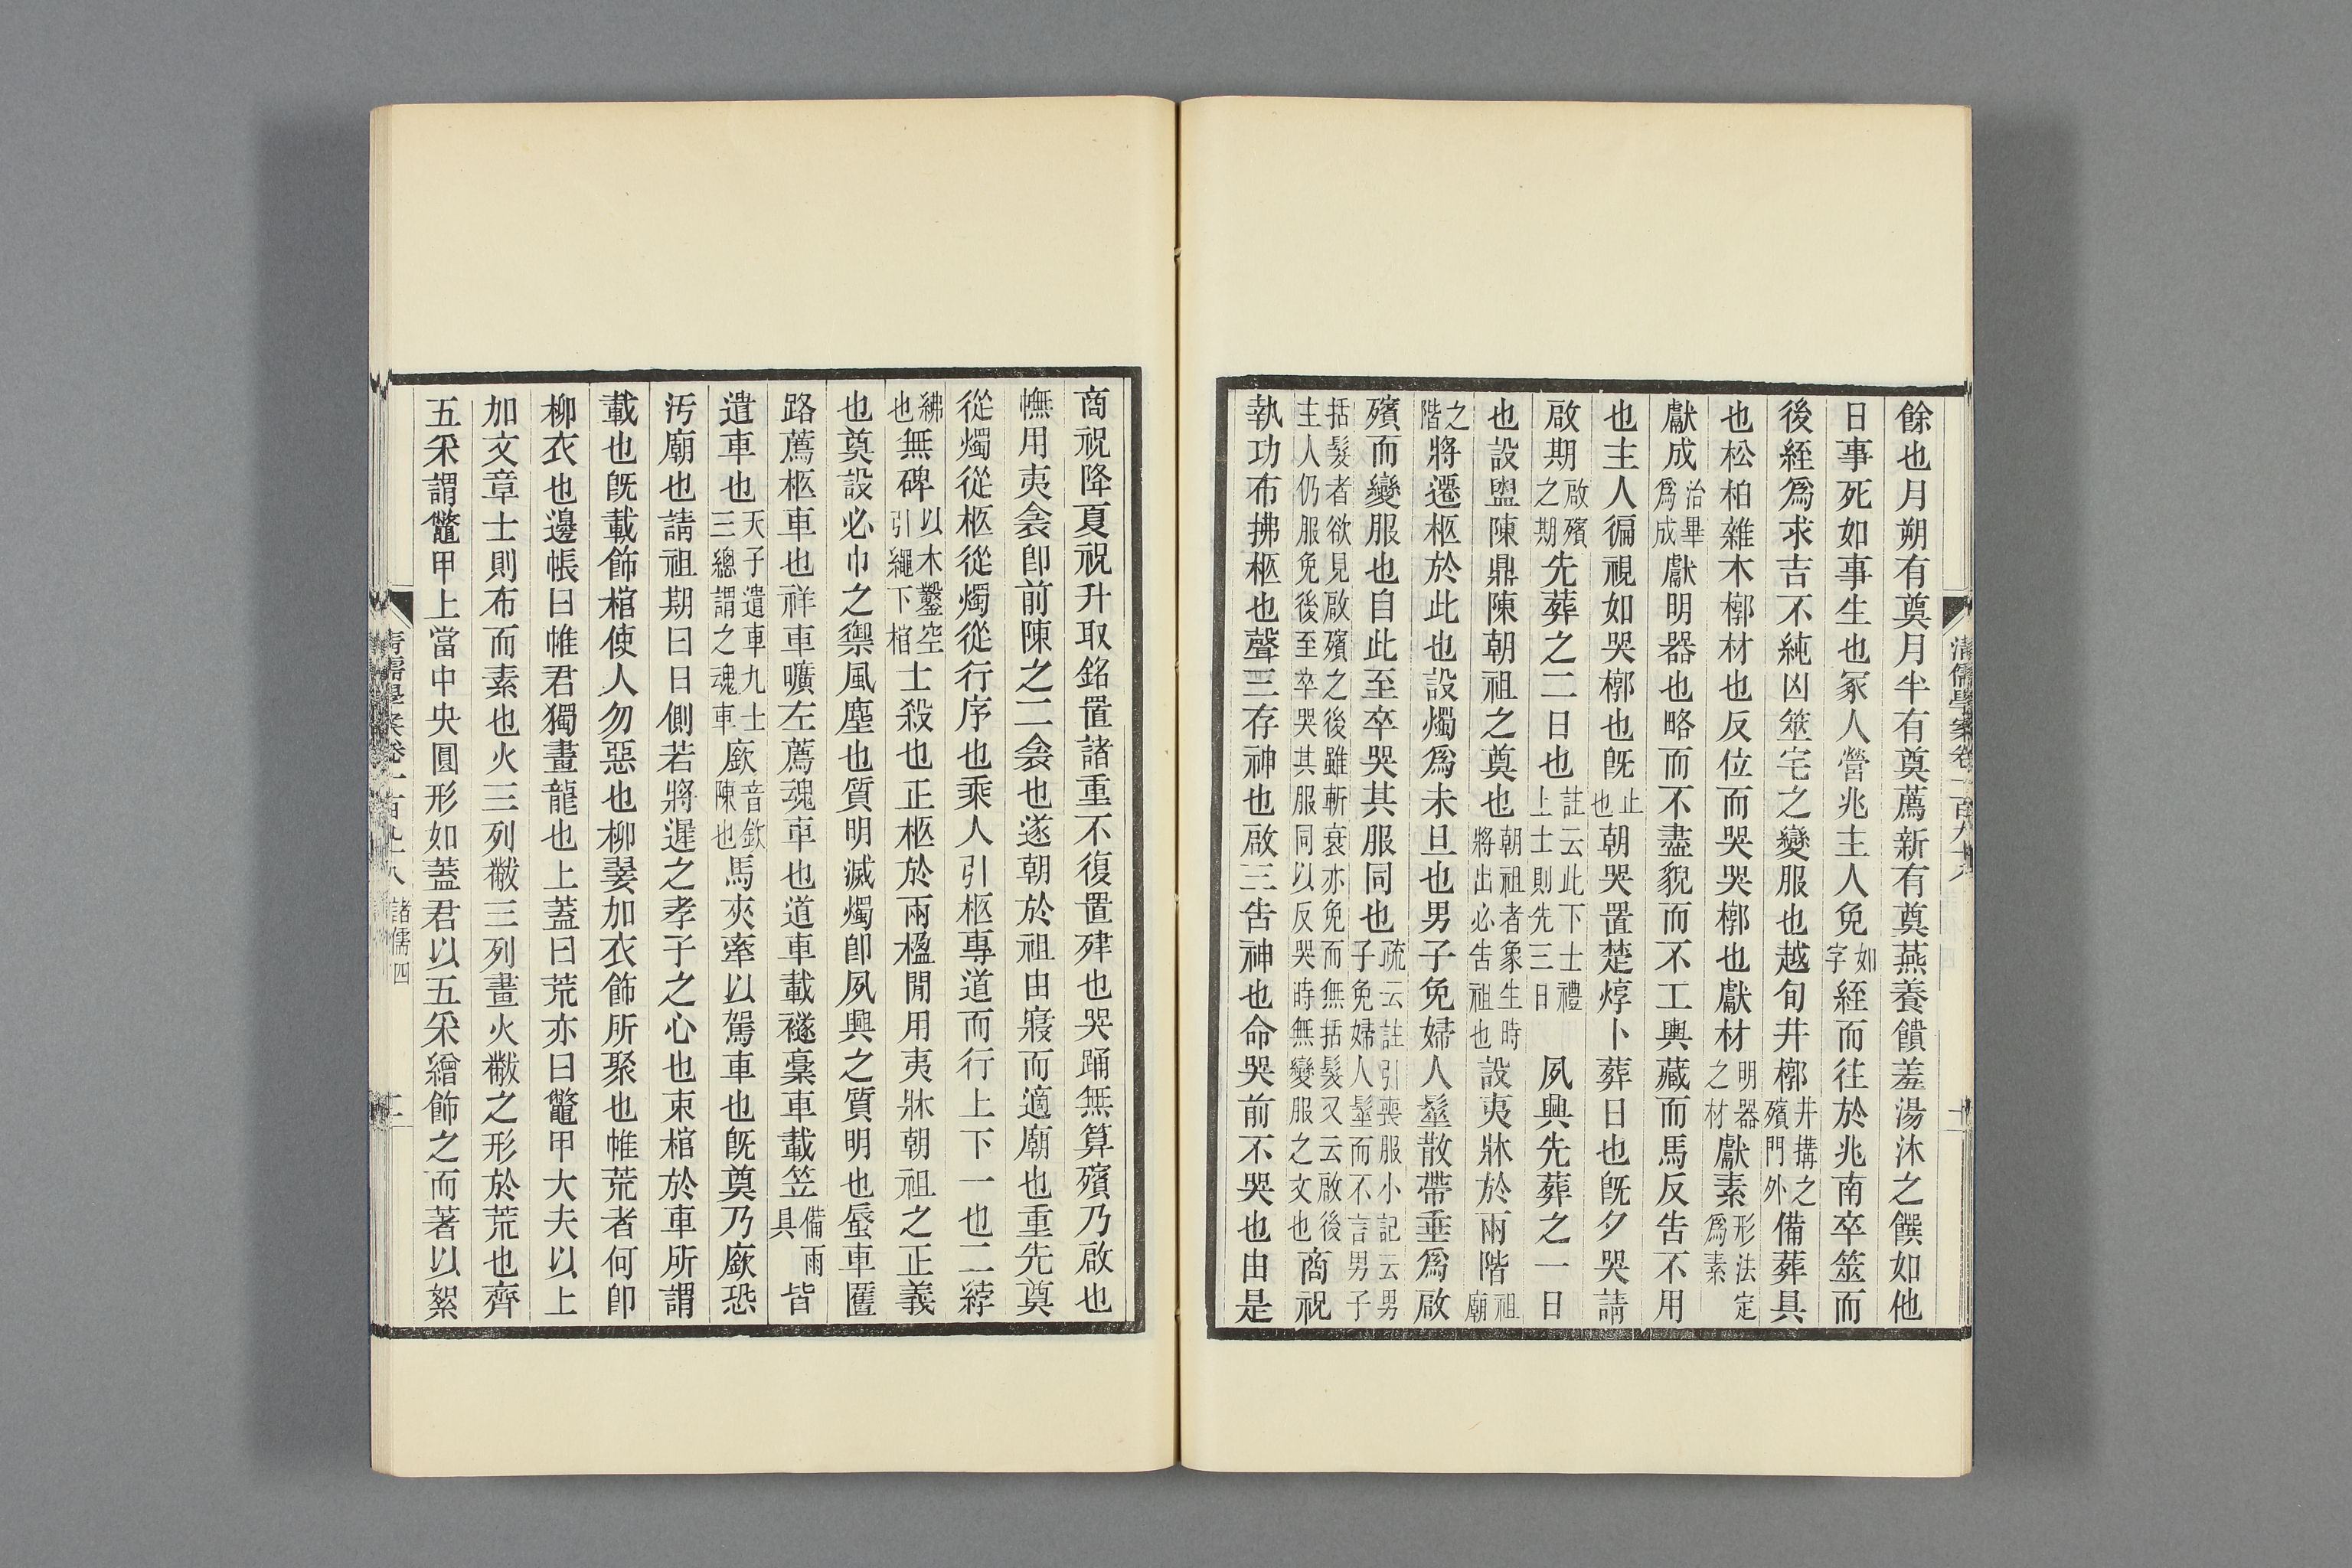 餘也月朔有奠月半有奠薦新有奠燕養饋羞湯沐之饌如他
日事死如事生也冢人營兆主人免如字絰而往於兆南卒筮而
後絰爲求吉不純凶筮宅之變服也越旬井槨井構之殯門外備葬具
也松柏雜木槨材也反位而哭哭槨也獻材明器之材獻素形法定爲素
獻成治畢爲成獻明器也略而不盡貌而不工輿藏而馬反告不用
也主人徧視如哭槨也旣止也朝哭置楚焞卜葬日也旣夕哭請
啟期啟殯之期先葬之二日也註云此下士禮上士則先三日夙興先葬之一日
也設盥陳鼎陳朝祖之奠也朝祖者象生時將出必告祖也設夷牀於兩階祖廟
之階將遷柩於此也設燭爲未旦也男子免婦人髽散帶垂爲啟
殯而變服也自此至卒哭其服同也疏云註引喪服小記云男子免婦人髽而不言男子
括髮者欲見啟殯之後雖斬衰亦免而無括髮又云啟後主人仍服免後至卒哭其服同以反哭時無變服之文也商祝
執功布拂柩也聲三存神也啟三告神也命哭前不哭也由是
清儒學案卷一百九十八
商祝降夏祝升取銘置諸重不復置肂也哭踊無算殯乃啟也
幠用夷衾卽前陳之二衾也遂朝於祖由寢而適廟也重先奠
從燭從柩從燭從行序也乘人引柩專道而行上下一也二綍
紼也無碑以木鑿空引繩下棺士殺也正柩於兩楹閒用夷牀朝祖之正義
也奠設必巾之禦風塵也質明滅燭卽夙興之質明也蜃車匶
路薦柩車也祥車曠左薦魂車也道車載襚稾車載笠備雨具皆
遣車也天子遣車九士三總謂之魂車廞音欽陳也馬夾牽以駕車也旣奠乃廞恐
汚廟也請祖期曰日側若將遲之孝子之心也束棺於車所謂
載也旣載飾棺使人勿惡也柳翣加衣飾所聚也帷荒者何卽
柳衣也邊帳曰帷君獨畫龍也上蓋曰荒亦曰鼈甲大夫以上
加文章士則布而素也火三列黻三列畫火黻之形於荒也齊
五采謂鼈甲上當中央圓形如蓋君以五采繒飾之而著以絮
清儒學案卷一百九十八 諸儒四